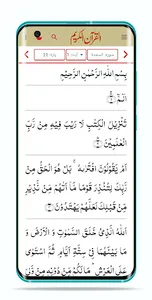 القرآن الكريم
سورة السجدة
پارہ 21
بِسْمِ اللهِ الرَّحْمٰنِ الرَّحِيْمِ
الٓمّٓ ۚ﴿۱﴾
تَنْزِيْلُ الْكِتٰبِ لَا رَيْبَ فِيْهِ مِنْ رَّبِّ
الْعٰلَمِيْنَ ؕ﴿۲﴾
اَمْ يَقُوْلُوْنَ افْتَرٰىهُ ۚ بَلْ هُوَ الْحَقُّ مِنْ
رَّبِّكَ لِتُنْذِرَ قَوْمًا مَّاۤ اَتٰىهُمْ مِّنْ نَّذِيْرٍ
مِّنْ قَبْلِكَ لَعَلَّهُمْ يَهْتَدُوْنَ ﴿۳﴾
اَللهُ الَّذِيْ خَلَقَ السَّمٰوٰتِ وَ الْاَرْضَ وَ
مَا بَيْنَهُمَا فِيْ سِتَّةِ اَيَّامٍ ثُمَّ اسْتَوٰى
عَلَى الْعَرْشِ ؕ مَا لَكُمْ مِّنْ دُوْنِهٖ مِنْ وَّلِيٍّ